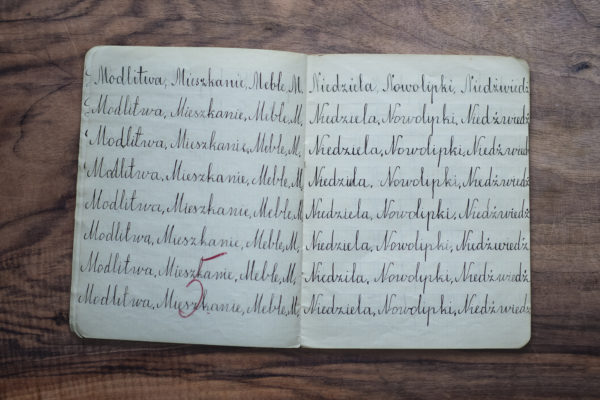 Modlitwa, Mieszkanie, Meble, M.
Modlitwa, Mieszkanie, Meble, M,
Modlitwa, Mieszkanie, Meble, M,
Modlitwa, Mieszkanie, Meble, M,
Modlitwa, Mieszkanie, Meble, M,
Modlitwa, Mieszkanie, Meble, M,
Modlitwa, Mieszkanie, Meble, M,
Modlitwa, Mieszkanie, Meble, M,
5
Niedziela, Nowolipki, Niedźwiedź
Niedziela, Nowolipki, Niedźwied
Niedziela, Nowolipki, Niedźwied
Niedziela, Nowolipki, Niedźwiedź
Niedziela, Nowolipki, Niedźwiedź
Niedziela, Nowolipki, Niedźwiedź
Niedziela, Nowolipki, Niedźwiedź
Niedziela, Nowolipki, Niedźwiedź